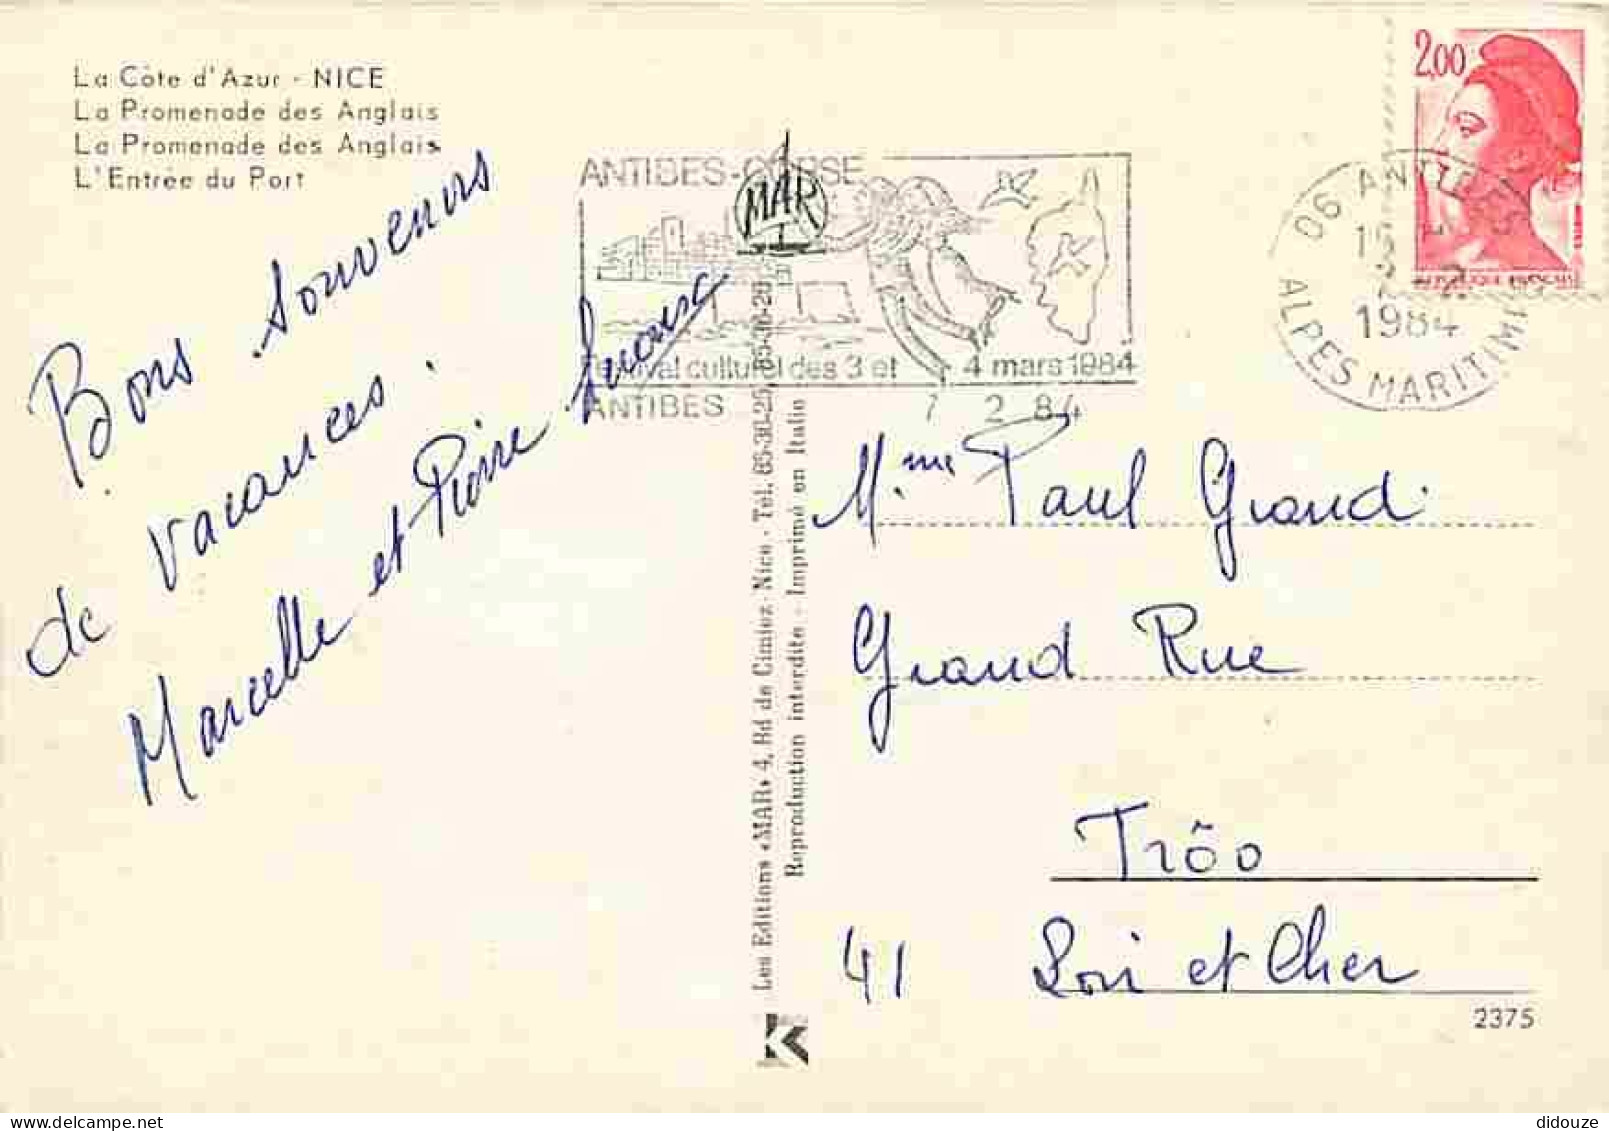 La Côte d'Azur - NICE
La Promenade des Anglais
La Promenade des Anglais
L'Entrée du Port
Bons souvenirs
de vacances.
Marcelle et Pierre
ANTIBES-CORSE
MAR
Festival culturel des 3 et 4 mars 1984
ANTIBES 7 2 84
2,00
06 ANTIBES
1984
ALPES MARITIMES
Les Editions «MAR» 4, Bd de Cimiez - Nice - Tél. 85-30-25, 85-30-20
Reproduction interdite - Imprimé en Italie
Mme Paul Grand
Grand Rue
Trôo
41 Loir et Cher
2375
K
didouze